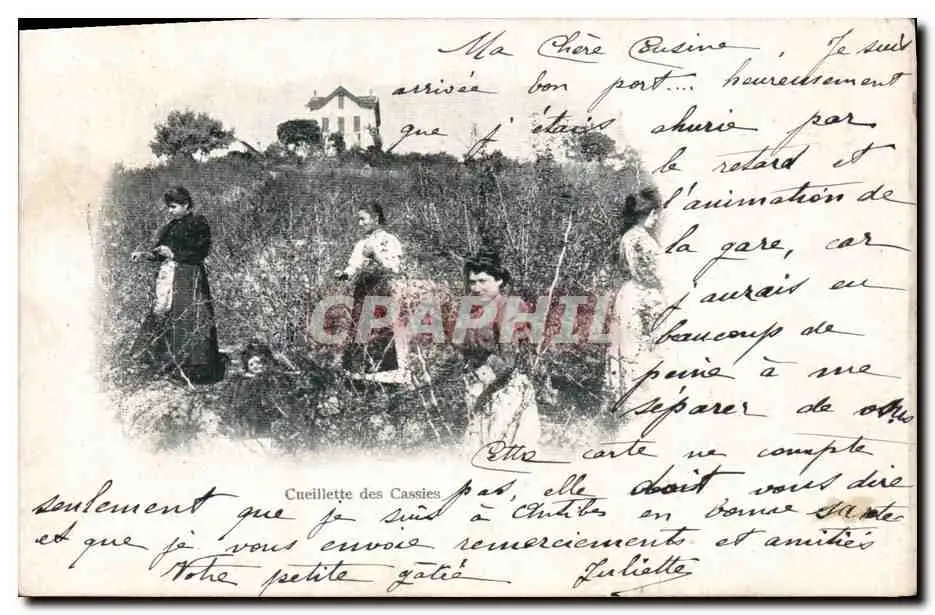 Ma Chère Cousine, Je suis
arrivée bon port.... heureusement
que j'étais ahurie par
le retard et
l'animation de
la gare, car
j'aurais eu
beaucoup de
peine à me
séparer de vous
Cette carte ne compte
Cueillette des Cassies
pas, elle doit vous dire
seulement que je suis à Antibes en bonne santée
et que je vous envoie remerciements et amitiés
Votre petite gâtée Juliette
CPARAMA